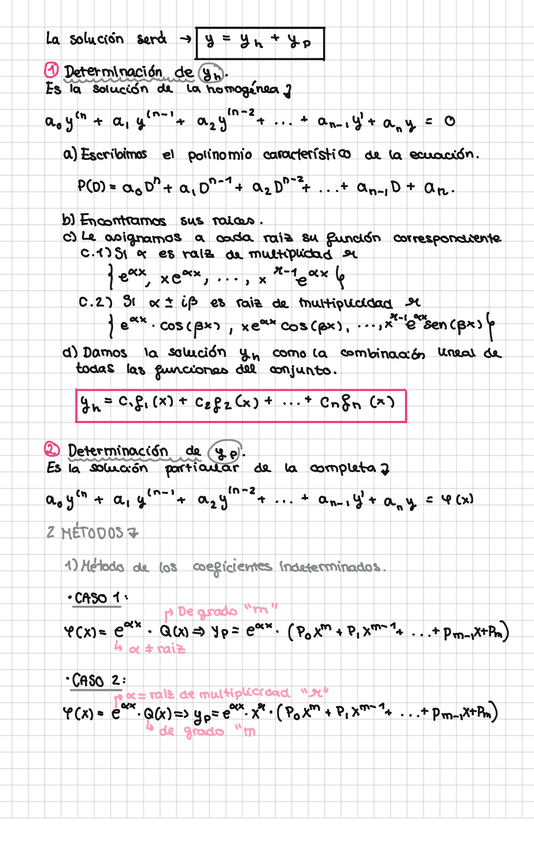 La solución será → y = yh + yp
① Determinación de yh.
Es la solución de la homogénea ⤵
a₀y⁽ⁿ + a₁ y⁽ⁿ⁻¹ + a₂ y⁽ⁿ⁻² + ... + aₙ₋₁ y' + aₙ y = 0
a) Escribimos el polinomio característico de la ecuación.
P(D) = a₀Dⁿ + a₁Dⁿ⁻¹ + a₂Dⁿ⁻² + ... + aₙ₋₁D + aₙ.
b) Encontramos sus raíces.
c) Le asignamos a cada raíz su función correspondiente
c.1) Si α es raíz de multiplicidad r
{e^αx, xe^αx, ..., x^r-1 e^αx}
c.2) Si α ± iβ es raiz de multiplicidad r
{e^αx · cos(βx), xe^αx cos(βx), ..., x^r-1 e^αx sen(βx)}
d) Damos la solución yh como la combinación lineal de
todas las funciones del conjunto.
yh = C₁f₁(x) + C₂f₂(x) + ... + Cnfn (x)
② Determinación de yp.
Es la solución particular de la completa ⤵
a₀y⁽ⁿ + a₁ y⁽ⁿ⁻¹ + a₂ y⁽ⁿ⁻² + ... + aₙ₋₁ y' + aₙ y = φ(x)
2 MÉTODOS ⤵
1) Método de los coeficientes indeterminados.
· CASO 1:
↱ De grado "m"
φ(x) = e^αx · Q(x) ⇒ yp = e^αx · (P₀x^m + P₁x^m-1 + ... + Pm-1x + Pm)
↳ α ≠ raiz
· CASO 2:
↱ α = raiz de multiplicidad "r"
φ(x) = e^αx · Q(x) => yp = e^αx · x^r · (P₀x^m + P₁x^m-1 + ... + Pm-1x + Pm)
↳ de grado "m